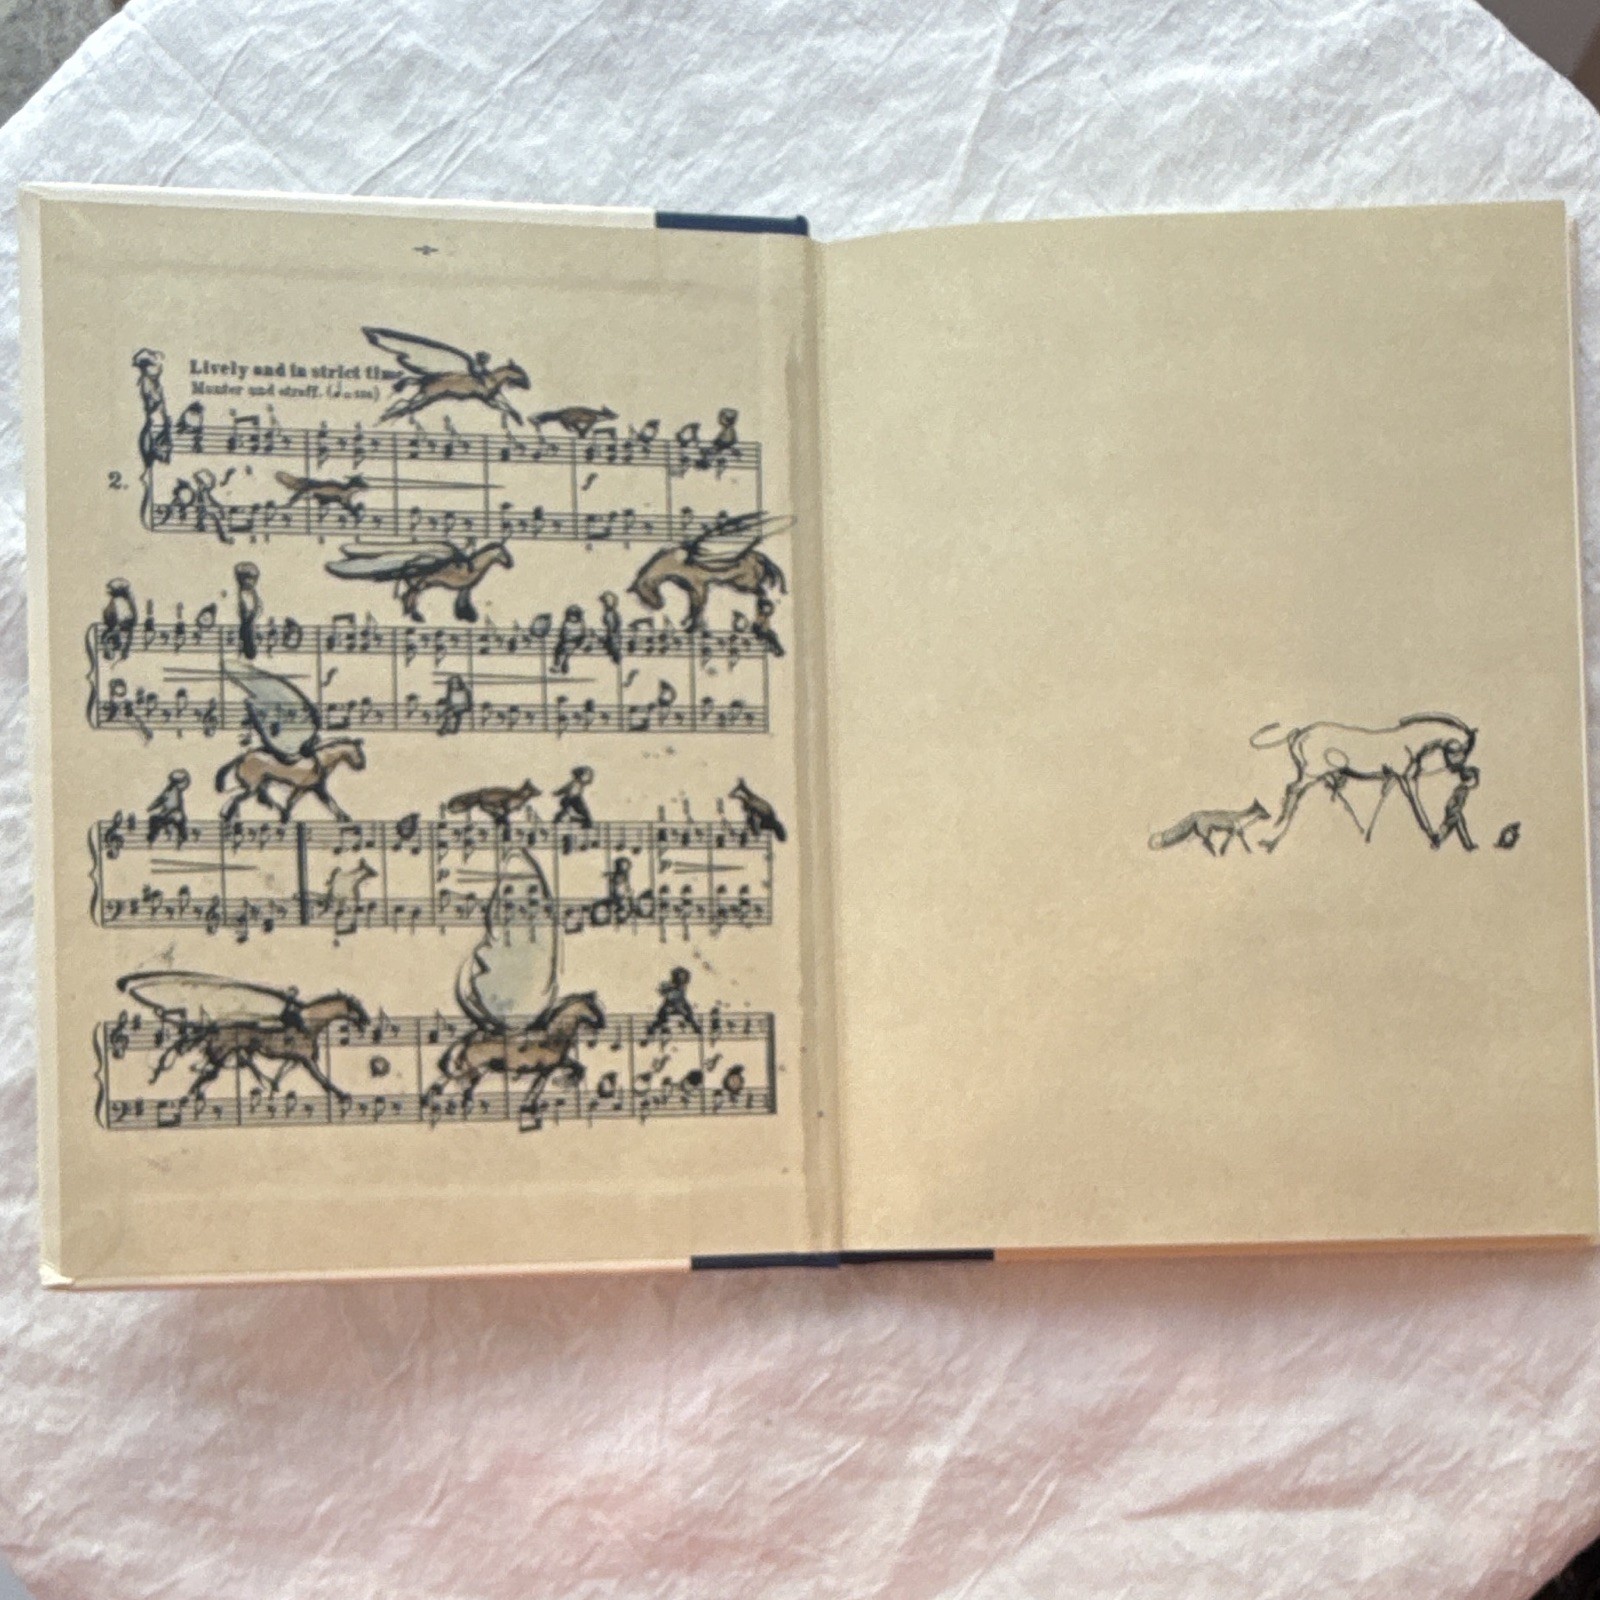 Lively and in strict time
Munter und straff. (♩=
2.